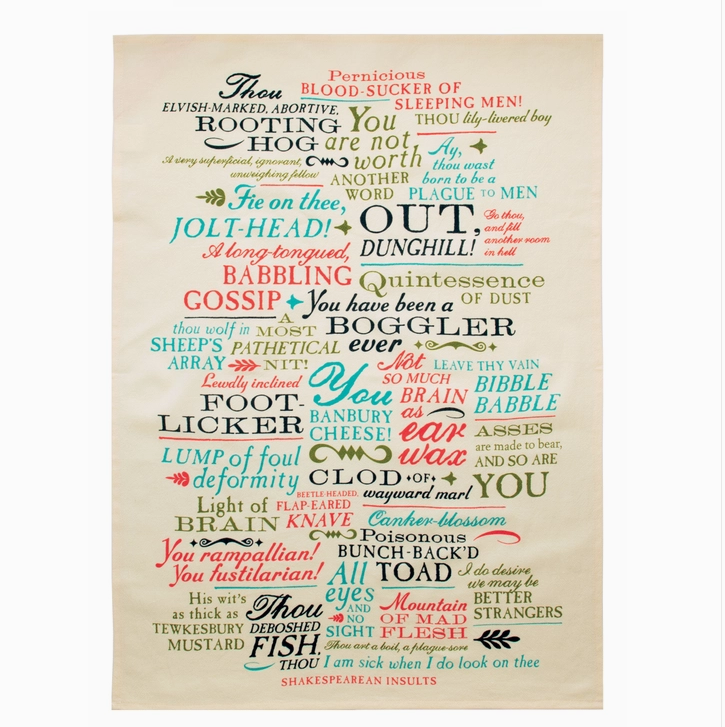 Pernicious
BLOOD-SUCKER OF
SLEEPING MEN!
Thou
ELVISH-MARKED, ABORTIVE,
ROOTING
HOG
You
are not
worth
ANOTHER
WORD
THOU lily-livered boy
A very superficial, ignorant,
unweighing fellow
Ay,
thou wast
born to be a
PLAGUE TO MEN
Fie on thee,
JOLT-HEAD!
OUT,
DUNGHILL!
Go thou,
and fill
another room
in hell
A long-tongued,
BABBLING
GOSSIP
Quintessence
OF DUST
You have been a
BOGGLER
ever
thou wolf in
SHEEP'S
ARRAY
A
MOST
PATHETICAL
NIT!
Not
SO MUCH
BRAIN
as
ear
wax
LEAVE THY VAIN
BIBBLE
BABBLE
Lewdly inclined
FOOT-
LICKER
You
BANBURY
CHEESE!
ASSES
are made to bear,
AND SO ARE
YOU
LUMP of foul
deformity
CLOD OF
wayward marl
BEETLE-HEADED,
FLAP-EARED
KNAVE
Light of
BRAIN
Canker-blossom
You rampallian!
You fustilarian!
Poisonous
BUNCH-BACK'D
TOAD
I do desire
we may be
BETTER
STRANGERS
All
eyes
AND
NO
SIGHT
His wit's
as thick as
TEWKESBURY
MUSTARD
Thou
DEBOSHED
FISH,
THOU
Mountain
OF MAD
FLESH
Thou art a boil, a plague-sore
I am sick when I do look on thee
SHAKESPEAREAN INSULTS